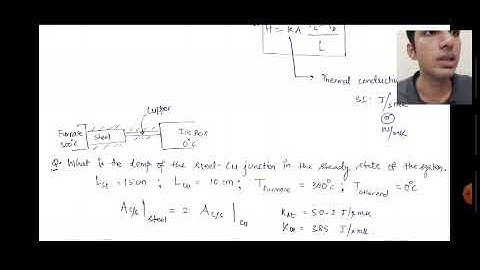 H = KA Tc - TD
L
Thermal conductiv
SI: J/smK
or
W/mK
Copper
Furnace
300°C
Steel
Ice Box
0°C
Q. What is the temp of the steel-Cu junction in the steady state of the system.
Lst = 15 cm ; Lcu = 10 cm ; Tfurnace = 300°C ; Tother end = 0°C
Ac/s|steel = 2 Ac/s|cu
Kst = 50.2 J/smK
Kcu = 385 J/smK